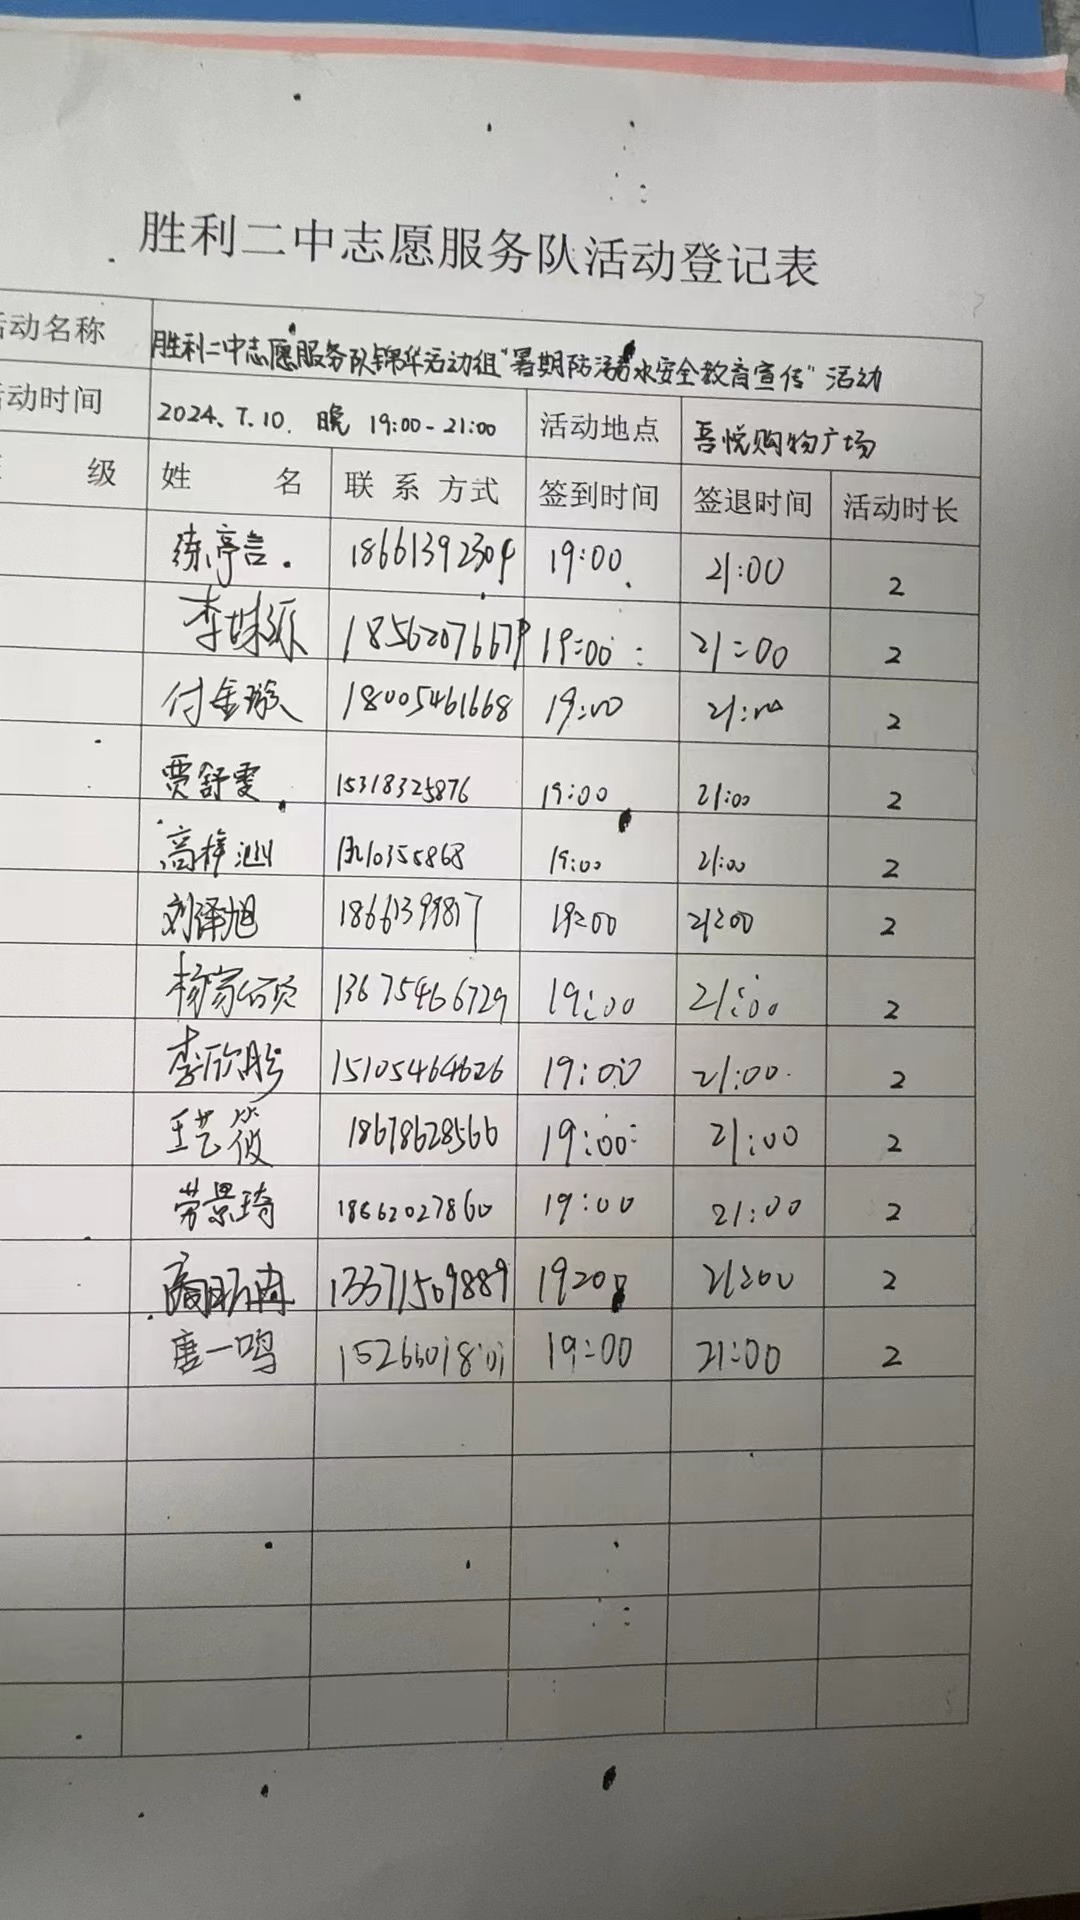 胜利二中志愿服务队活动登记表
活动名称 胜利二中志愿服务队锦华活动组"暑期防溺水安全教育宣传"活动
活动时间 2024.7.10. 晚 19:00-21:00 活动地点 吾悦购物广场
级 姓 名 联系方式 签到时间 签退时间 活动时长
练亭言. 18661392304 19:00 21:00 2
李 18562076679 19:00 21:00 2
付金璇 18005461668 19:00 21:00 2
贾舒雯 15318325876 19:00 21:00 2
高梓 19:00 21:00 2
刘泽旭 19:00 21:00 2
杨家硕 13675466729 19:00 21:00 2
李欣彤 15105464626 19:00 21:00 2
王艺筱 18678628566 19:00 21:00 2
劳景琦 18662027860 19:00 21:00 2
13371509889 21:00 2
唐一鸣 19:00 21:00 2